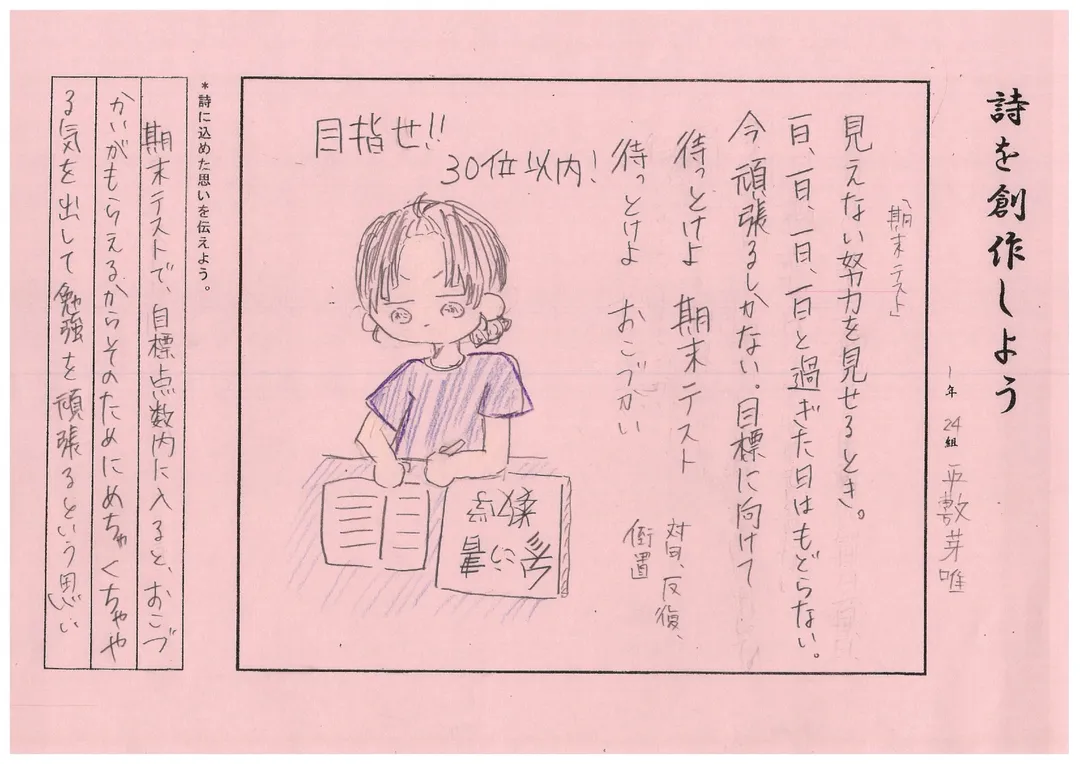 詩を創作しよう
1年 24組 平敷芽唯
「期末テスト」
見えない努力を見せるとき。
一日、一日、一日、一日と過ぎた日はもどらない。
今頑張るしかない。目標に向けて
待っとけよ 期末テスト
待っとけよ おこづかい
対句、反復、
倒置
30位以内!
目指せ!!
*詩に込めた思いを伝えよう。
期末テストで、目標点数内に入ると、おこづ
かいがもらえるからそのためにめちゃくちゃや
る気を出して勉強を頑張るという思い